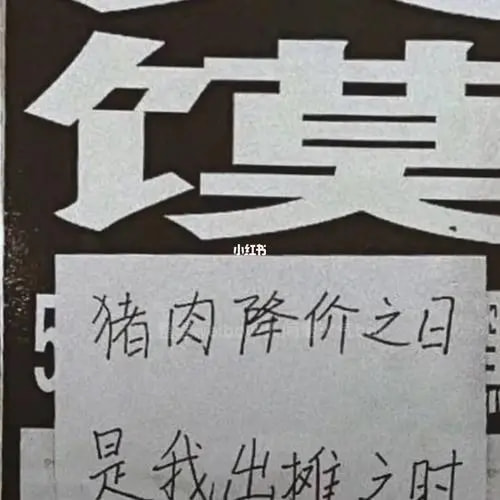 馍
小红书
猪肉降价之日
5
是我出摊之时